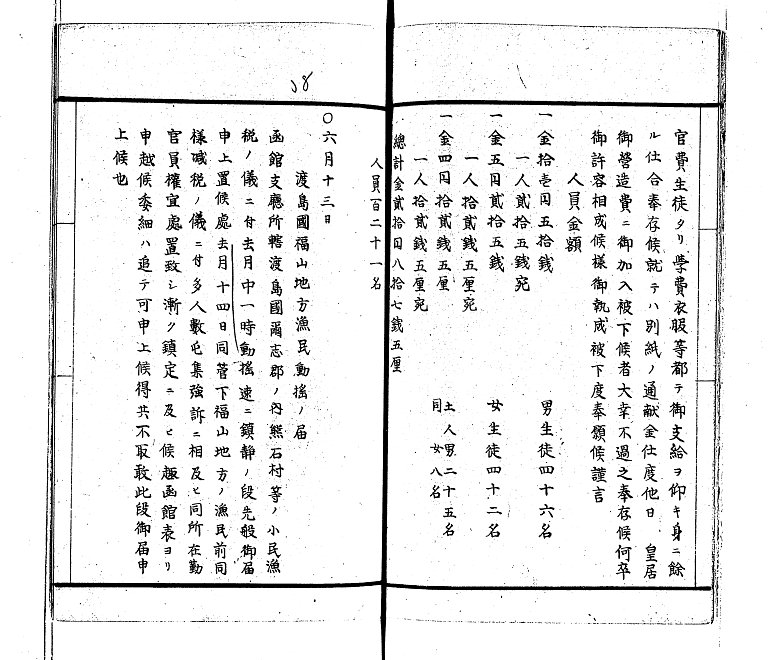 官費生徒タリ學費衣服等都テ御支給ヲ仰キ身ニ餘
ル仕合奉存候就テハ別紙ノ通献金仕度他日　皇居
御營造費ニ御加入被下候者大幸不過之奉存候何卒
御許容相成候樣御執成被下度奉願候謹言
人員金額
一金拾壱円五拾銭　男生徒四十六名
一人貳拾五銭宛
一金五円貳拾五銭　女生徒四十二名
一人拾貳銭五厘宛
一金四円拾貳銭五厘　土人男二十五名　同女八名
一人拾貳銭五厘宛
總計金貳拾円八拾七銭五厘
人員百二十一名
18
〇六月十三日
渡島國福山地方漁民動搖ノ届
函館支廳所轄渡島國爾志郡ノ内熊石村等ノ小民漁
税ノ儀ニ付去月中一時動搖速ニ鎮静ノ段先般御届
申上置候處去月十四日同管下福山地方ノ漁民前同
樣減税ノ儀ニ付多人數屯集強訴ニ相及ヒ同所在勤
官員權宜處置致シ漸ク鎮定ニ及ヒ候趣函館表ヨリ
申越候委細ハ追テ可申上候得共不取敢此段御届申
上候也